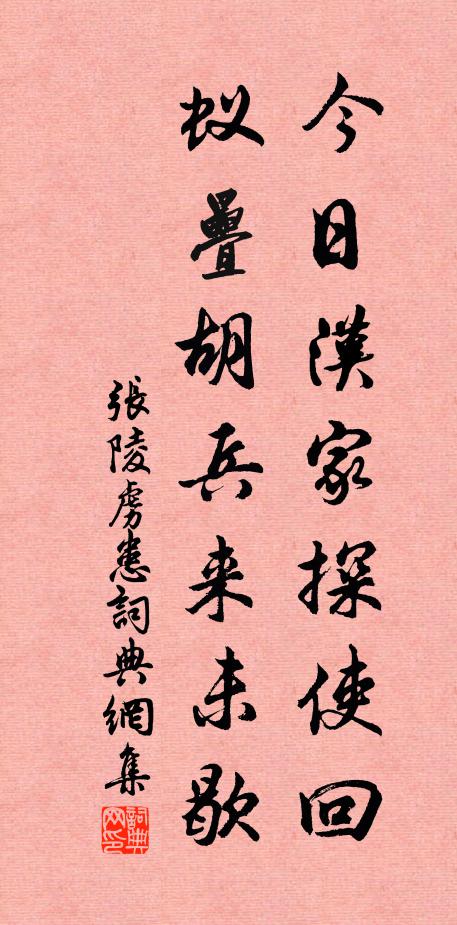 今日漢家探使回
蚁疊胡兵来未歇
張陵虏患詞典網集
詞典网印